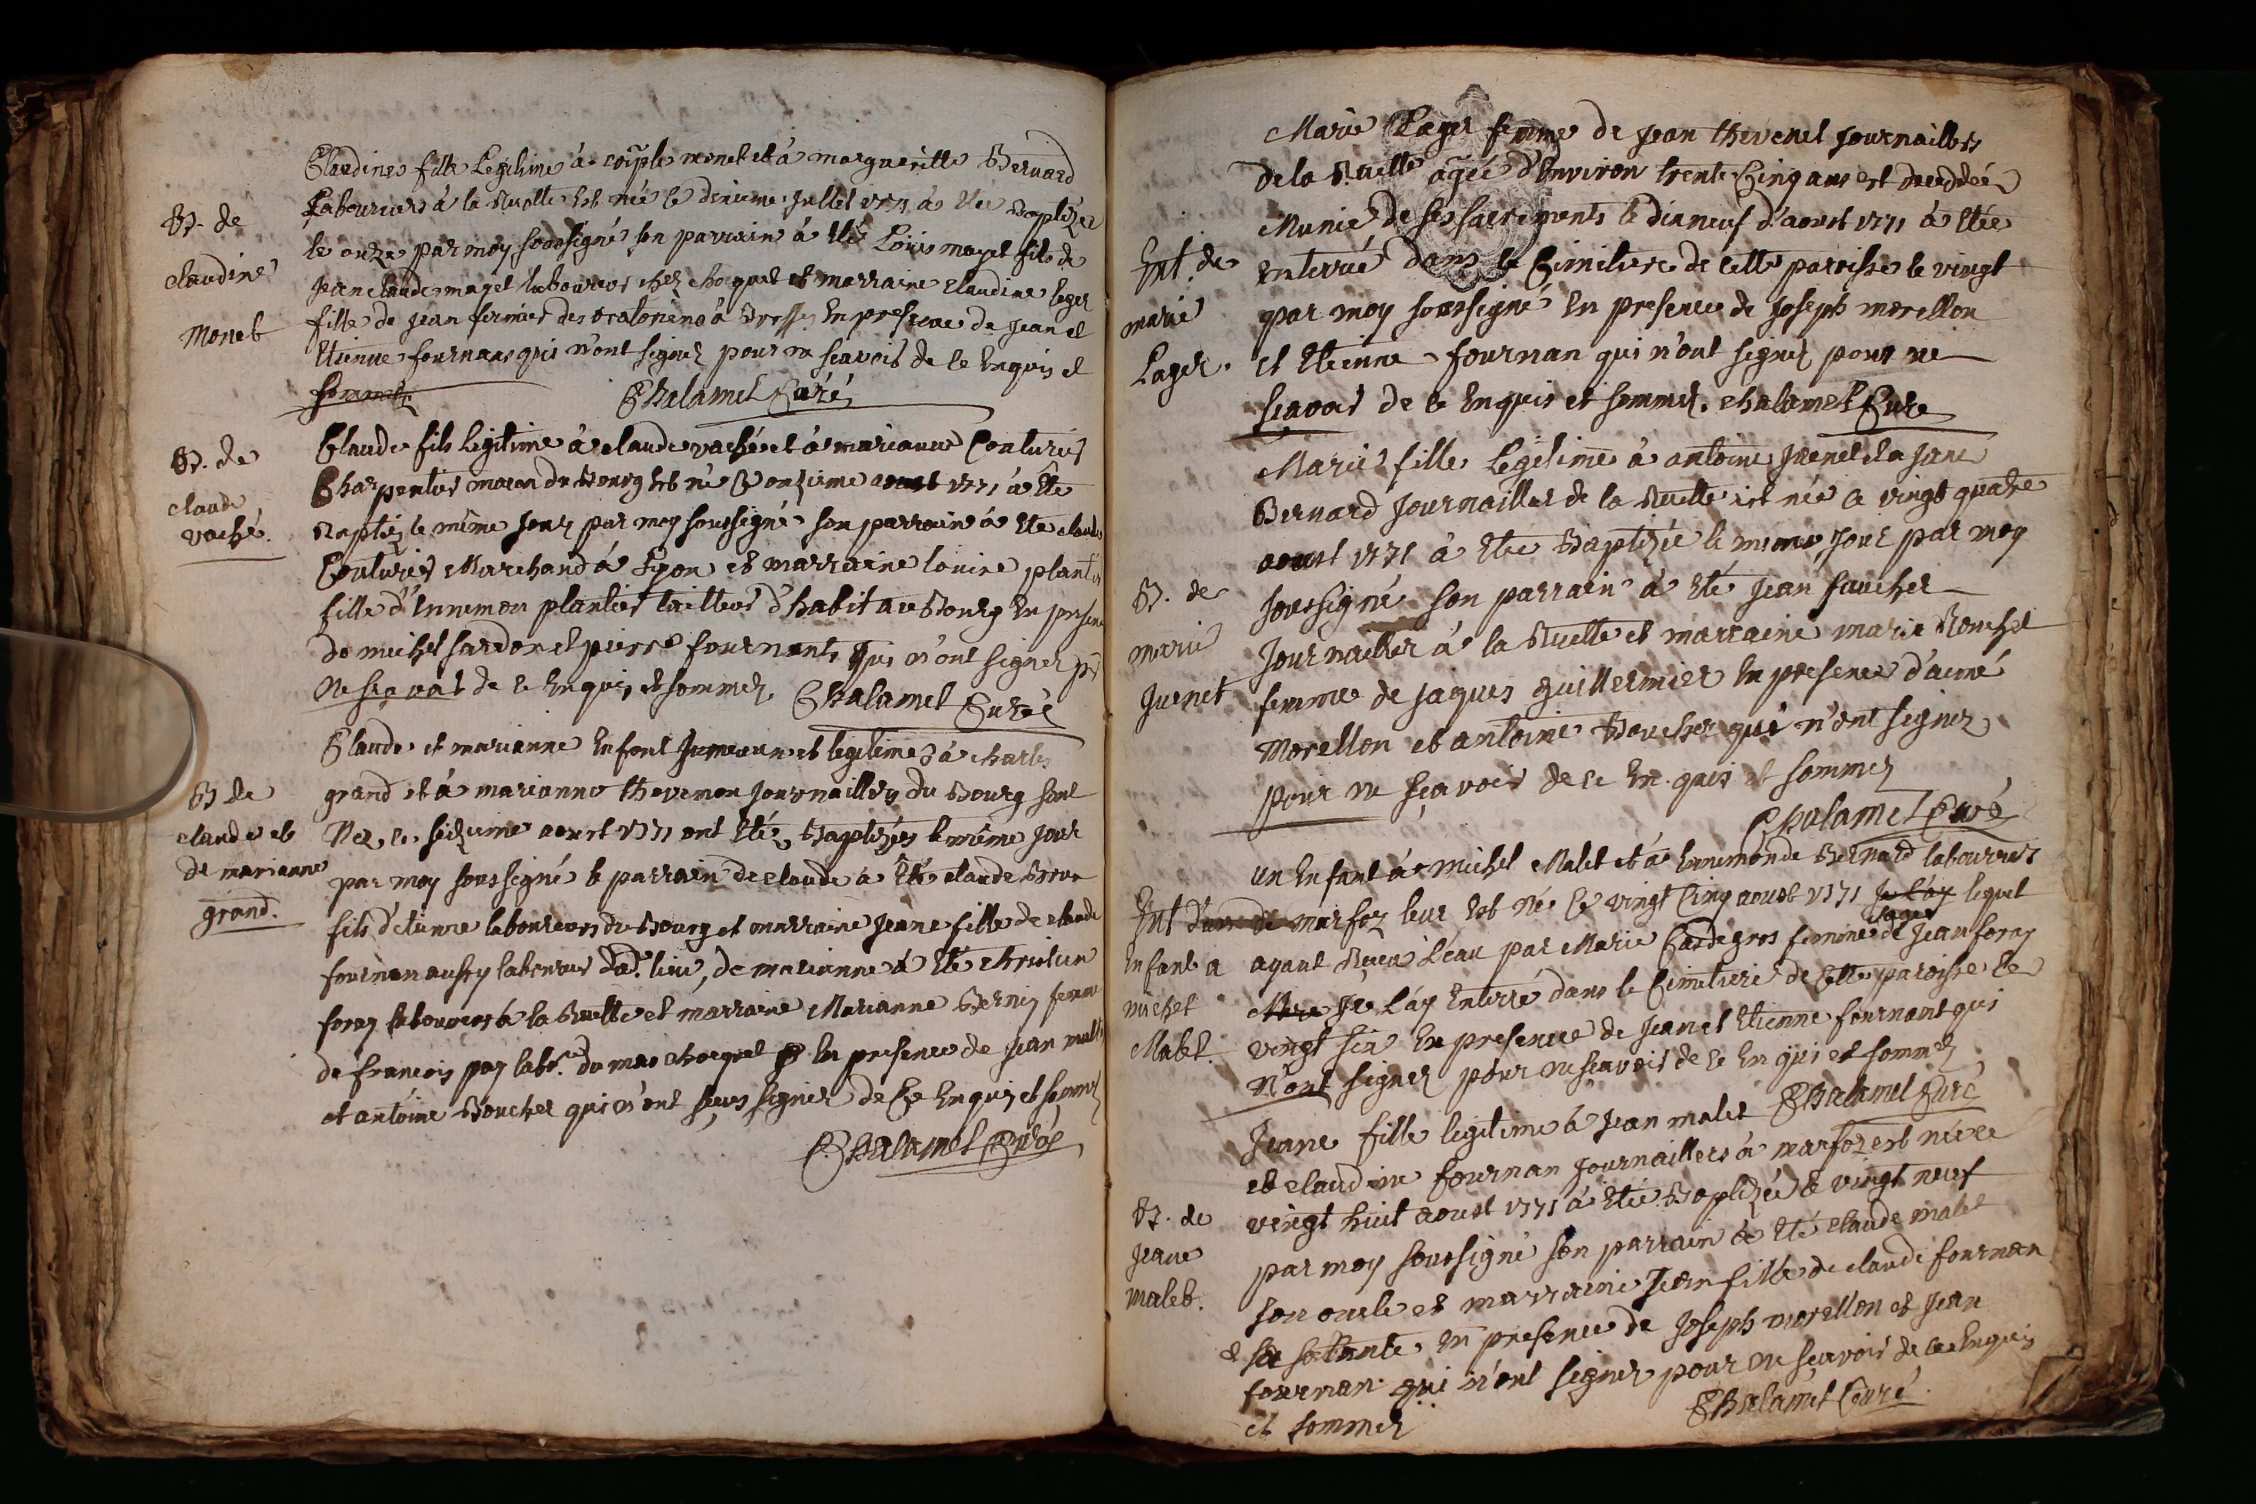 B. de
claudine
Monet
Claudine fille Legitime à monet et à margueritte Bernard
Laboureurs à la Ruette est née le dixieme Jullet 1771 à Etée Baptizée
le onze par moy soussigné son parrain à Eté Louis mayet fils de
Jean claude mayet laboureur chez choquet et marraine claudine leger
fille de Jean fermier des à En presence de Jean et
Etienne fournan qui n'ont signez pour ne sçavoir de ce Enquis et
sommez Chalamel Curé
B. de
claude
vaché.
Claude fils Legitime à claude vaché et à marianne Couturier
Charpentier du Bourg est né Ce onzieme aoust 1771 à Eté
Baptizé le même Jour par moy soussigné son parrain à Eté claude
Couturier Marchand à Lyon et marraine louise plantier
fille d'Ennemon plantier tailleur d'habit au Bourg En presence
de michel sardon et pierre fournant qui n'ont signez pr
ne sçavoir de ce Enquis et sommez. Chalamel Curé
B de
claude et
de marianne
grand.
Claude et marianne Enfant Jumeaux et legitimes à charles
grand et à marianne thevenon Journailliers du Bourg sont
Nez le seizieme aoust 1771 ont Eté Baptizés le même Jour
par moy soussigné le parrain de claude à Eté claude
fils d'etienne laboureur du Bourg et marraine Jeanne fille de claude
fournan aussy laboureur dud. lieu, de marianne à Eté
foray laboureur à la Ruette et marraine Marianne femme
de francois pay labr. du mas choquet En presence de Jean malet
et antoine Boucher qui n'ont sceus signer de Ce Enquis et sommez
Chalamel Curé
Ent. de
marie
Lager.
Marie Lager femme de Jean thevenet Journaillers
de la Ruette agée d'Environ trente Cinq ans est decedée
Munie de ses sacrements le dixneuf d'aoust 1771 à Etée
enterrée dans le Cimetiere de cette paroisse le vingt
par moy soussigné En presence de Joseph morellon
et Etienne fournan qui n'ont signez pour ne
sçavoir de ce Enquis et sommez. chalamel Curé
B. de
marie
Juenet
Marie fille Legitime à antoine Juenet et à Jane
Bernard Journaillers de la Ruette est née le vingt quatre
aoust 1771 à Etée Baptizée le même Jour par moy
soussigné son parrain à Eté Jean faucher
Journaillier à la Ruette et marraine marie Bouchet
femme de jaques guillermier En presence d'aimé
Morellon et antoine Boucher qui n'ont signez
pour ne sçavoir de ce En quis et sommez
Chalamel Curé
Ent d'un
Enfant a
michel
Malet.
un Enfant à Michel Malet et à Ennemonde Bernard laboureurs
de marfoz leur Est né Ce vingt Cinq aoust 1771 Je l'ay lequel
ayant Receu L'eau par Marie Cardegros femme de Jean foray
sage
Mere Je L'ay Enterré dans le Cimetiere de Cette paroisse le
vingt six En presence de Jean et Etienne fournant qui
n'ont signez pour ne sçavoir de ce Enquis et sommez
Chalamel Curé
B. de
Jeane
malet.
Jeane fille legitime à Jean malet
et claudine fournan Journaillers à marfoz est née ce
vingt huit aoust 1771 à Etée Baptizée le vingt neuf
par moy soussigné son parrain à Eté claude malet
son oncle et marraine Jean fille de claude fournan
sa tante En presence de Joseph morellon et Jean
fournan qui n'ont signez pour ne sçavoir de ce Enquis
et sommez
Chalamel Curé